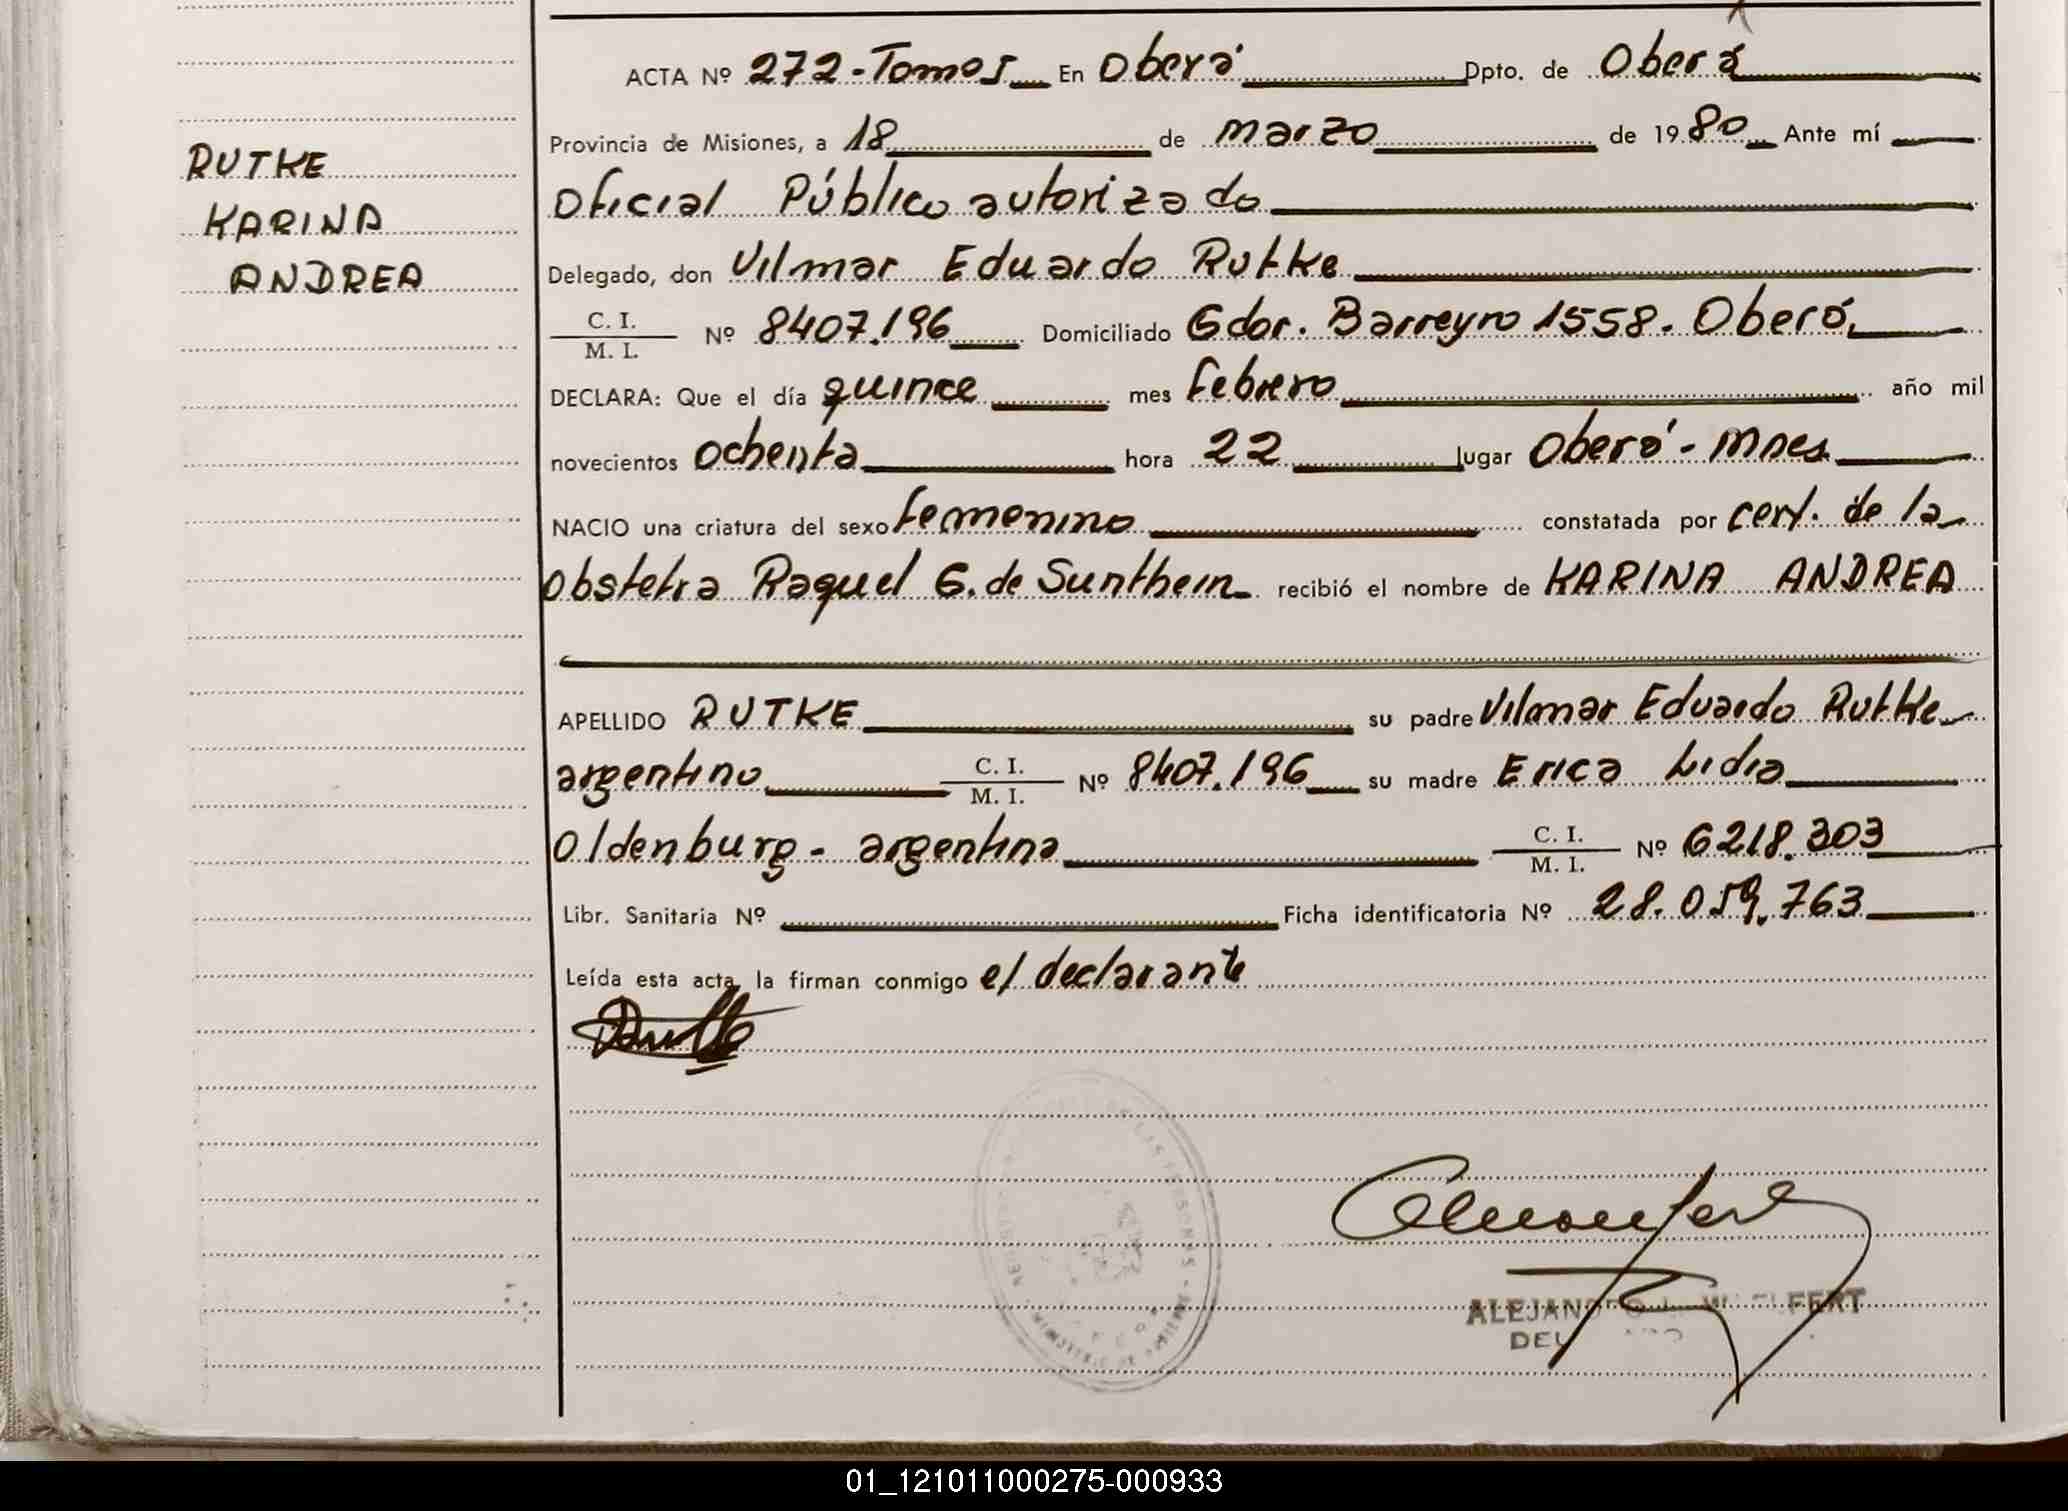 RUTKE
KARINA
ANDREA
ACTA Nº 272-Tomo5 En Oberá Dpto. de Oberá
Provincia de Misiones, a 18 de marzo de 1980 Ante mí
Oficial Público autorizado
Delegado, don Vilmar Eduardo Rutke
C. I. / M. I. Nº 8407.196 Domiciliado Gdor. Barreyro 1558. Oberá.
DECLARA: Que el día quince mes febrero año mil
novecientos ochenta hora 22 lugar Oberá - Mnes.
NACIO una criatura del sexo femenino constatada por cert. de la
Obstetra Raquel G. de Sunthein recibió el nombre de KARINA ANDREA
APELLIDO RUTKE su padre Vilmar Eduardo Rutke
argentino C. I. / M. I. Nº 8407.196 su madre Erica Lidia
Oldenburg - argentina C. I. / M. I. Nº 6218.303
Libr. Sanitaria Nº Ficha identificatoria Nº 28.059.763
Leída esta acta, la firman conmigo el declarante
01_121011000275-000933